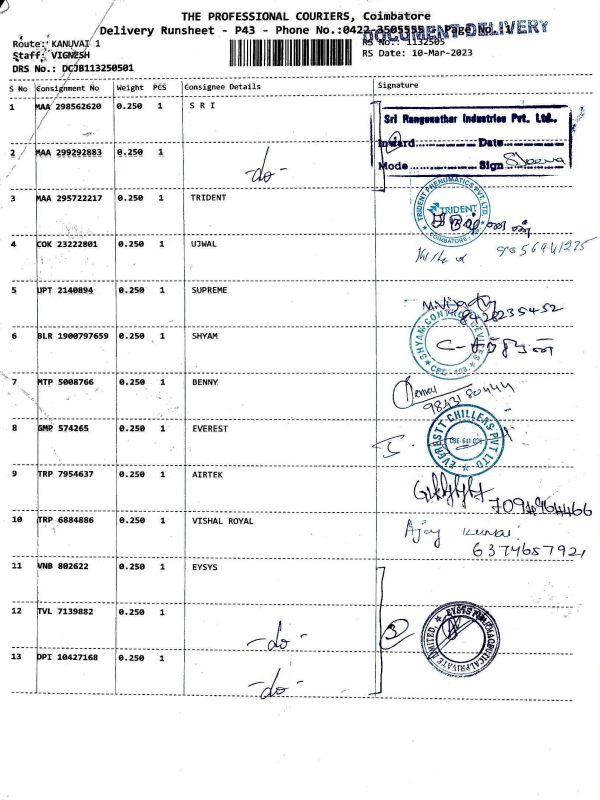 THE PROFESSIONAL COURIERS, Coimbatore
Delivery Runsheet - P43 - Phone No.:0422 3505555 Page No. 1
DOCUMENT DELIVERY
Route: KANUVAI 1
Staff: VIGNESH
DRS No.: DCJB113250501
RS No.: 1132505
RS Date: 10-Mar-2023
S No Consignment No Weight PCS Consignee Details Signature
1 MAA 298562620 0.250 1 S R I
Sri Ranganathar Industries Pvt. Ltd.,
Inward Date
Mode Sign
2 MAA 299292883 0.250 1 -do-
3 MAA 295722217 0.250 1 TRIDENT
TRIDENT PNEUMATICS PVT. LTD.
TRIDENT
COIMBATORE
4 COK 23222801 0.250 1 UJWAL
5 UPT 2140894 0.250 1 SUPREME
8428235452
6 BLR 1900797659 0.250 1 SHYAM
SHYAM CONTROL DEVICES
7 MTP 5008766 0.250 1 BENNY
8 GMP 574265 0.250 1 EVEREST
EVERESTT CHILLERS PVT LTD
9 TRP 7954637 0.250 1 AIRTEK
10 TRP 6884886 0.250 1 VISHAL ROYAL
Ajay Kumar
6374657921
11 VNB 802622 0.250 1 EYSYS
12 TVL 7139882 0.250 1 -do-
3
13 DPI 10427168 0.250 1 -do-